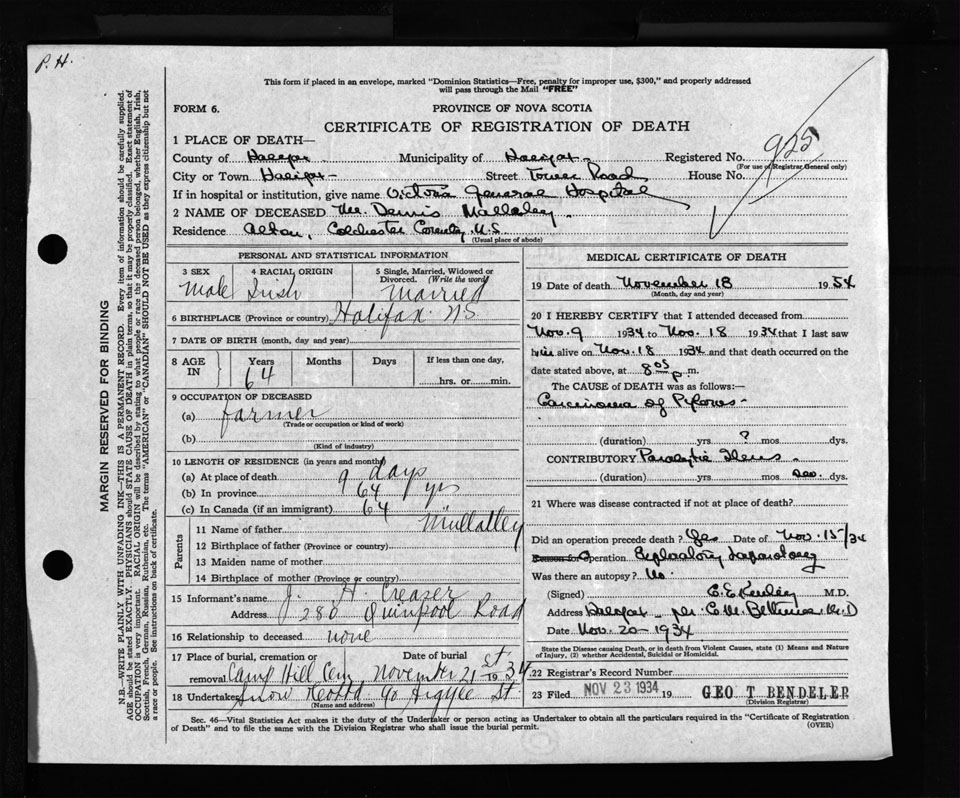 P. H.
This form if placed in an envelope, marked "Dominion Statistics—Free, penalty for improper use, $300," and properly addressed
will pass through the Mail "FREE"
FORM 6.
PROVINCE OF NOVA SCOTIA
CERTIFICATE OF REGISTRATION OF DEATH
1 PLACE OF DEATH—
County of Halifax Municipality of Halifax Registered No. 925
(For use of Registrar General only)
City or Town Halifax Street Tower Road House No.
If in hospital or institution, give name Victoria General Hospital
2 NAME OF DECEASED Mr. Dennis Mallaley
Residence Alton, Colchester County N.S.
(Usual place of abode)
PERSONAL AND STATISTICAL INFORMATION
3 SEX 4 RACIAL ORIGIN 5 Single, Married, Widowed or
Divorced. (Write the word)
Male Irish Married
6 BIRTHPLACE (Province or country) Halifax NS
7 DATE OF BIRTH (month, day and year)
8 AGE IN Years Months Days If less than one day,
64 hrs. or min.
9 OCCUPATION OF DECEASED
(a) farmer
(Trade or occupation or kind of work)
(b)
(Kind of industry)
10 LENGTH OF RESIDENCE (in years and months)
(a) At place of death 9 days
(b) In province 64 yrs
(c) In Canada (if an immigrant) 64
Parents
11 Name of father Mullatley
12 Birthplace of father (Province or country)
13 Maiden name of mother
14 Birthplace of mother (Province or country)
15 Informant's name J. H. Creaser
Address 280 Quinpool Road
16 Relationship to deceased none
17 Place of burial, cremation or Date of burial
removal Camp Hill Cem, November 21st 1934
18 Undertaker Snow 90 Argyle St
(Name and address)
MEDICAL CERTIFICATE OF DEATH
19 Date of death November 18 1934
(Month, day and year)
20 I HEREBY CERTIFY that I attended deceased from
Nov. 9 1934 to Nov. 18 1934 that I last saw
him alive on Nov. 18 1934 and that death occurred on the
date stated above, at 8 05 p. m.
The CAUSE of DEATH was as follows:—
Carcinoma of Pylorus
(duration) yrs. ? mos. dys.
CONTRIBUTORY Paralytic Ileus
(duration) yrs. mos. dys.
21 Where was disease contracted if not at place of death?
Did an operation precede death? Yes Date of Nov. 15/34
Reason for Operation Exploratory Laparotomy
Was there an autopsy? No
(Signed) M.D.
Address Halifax per C. M. M.D
Date Nov. 20 - 1934
State the Disease causing Death, or in death from Violent Causes, state (1) Means and Nature
of Injury, (2) whether Accidental, Suicidal or Homicidal.
22 Registrar's Record Number
23 Filed NOV 23 1934 19 GEO T BENDELER
(Division Registrar)
Sec. 46—Vital Statistics Act makes it the duty of the Undertaker or person acting as Undertaker to obtain all the particulars required in the "Certificate of Registration
of Death" and to file the same with the Division Registrar who shall issue the burial permit.
(OVER)
MARGIN RESERVED FOR BINDING
N.B.—WRITE PLAINLY WITH UNFADING INK—THIS IS A PERMANENT RECORD. Every item of information should be carefully supplied.
AGE should be stated EXACTLY. PHYSICIANS should STATE CAUSE OF DEATH in plain terms, so that it may be properly classified. Exact statement of
OCCUPATION is very important. RACIAL ORIGIN will be described by stating to what people or race the deceased person belonged, whether English, Irish,
Scottish, French, German, Russian, Ruthenian, etc. The terms "AMERICAN" or "CANADIAN" SHOULD NOT BE USED as they express citizenship but not
a race or people. See instructions on back of certificate.